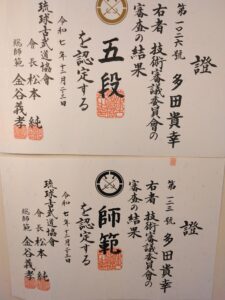 證
第一〇二六號 多田貴幸
右者 技術審議委員會の
審査の結果
五段
を認定する
令和七年十二月二十三日
琉球古武道協會
會長 松本 純
総師範 金谷義孝
證
第一二三號 多田貴幸
右者 技術審議委員會の
審査の結果
師範
を認定する
令和七年十二月二十三日
琉球古武道協會
會長 松本 純
総師範 金谷義孝